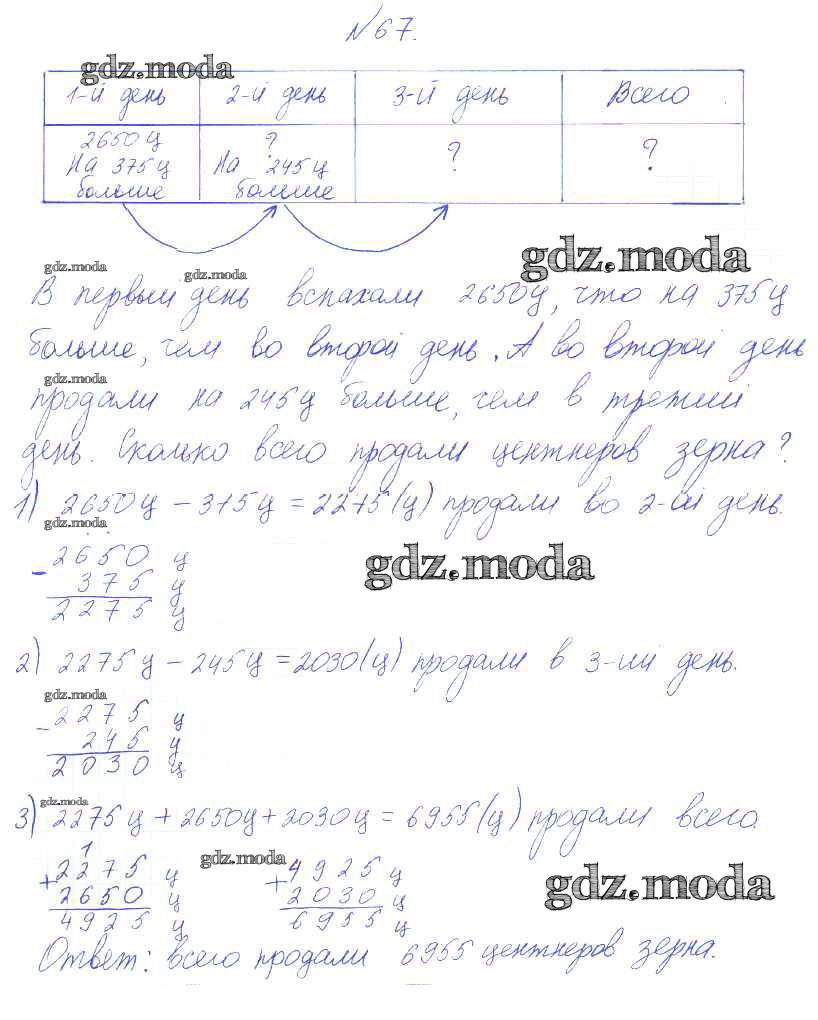 №67.
gdz.moda
1-й день 2-й день 3-й день Всего
2650ц ? ? ?
На 375ц На 245ц
больше больше
gdz.moda
gdz.moda gdz.moda
В первый день вспахали 2650ц, что на 375ц
больше, чем во второй день. А во второй день
gdz.moda
продали на 245ц больше, чем в третий
день. Сколько всего продали центнеров зерна?
1) 2650ц - 375ц = 2275(ц) продали во 2-ой день.
gdz.moda
- 2650 ц
gdz.moda
375 ц
2275 ц
2) 2275ц - 245ц = 2030(ц) продали в 3-ий день.
gdz.moda
- 2275 ц
245 ц
2030 ц
gdz.moda
3) 2275ц + 2650ц + 2030ц = 6955(ц) продали всего.
1
+ 2275 ц gdz.moda + 4925 ц
2650 ц 2030 ц gdz.moda
4925 ц 6955 ц
Ответ: всего продали 6955 центнеров зерна.